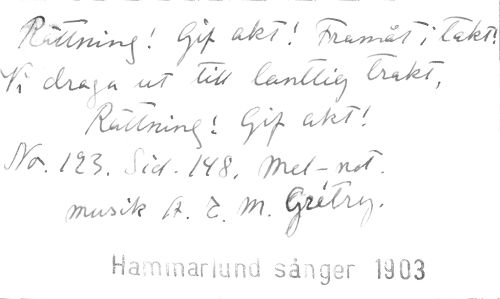 Rättning! Gif akt! Framåt i takt!
Vi draga ut till lantlig trakt,
Rättning! Gif akt!
No. 123. Sid. 148. Mel-not.
musik A. E. M. Grétry.
Hammarlund sånger 1903